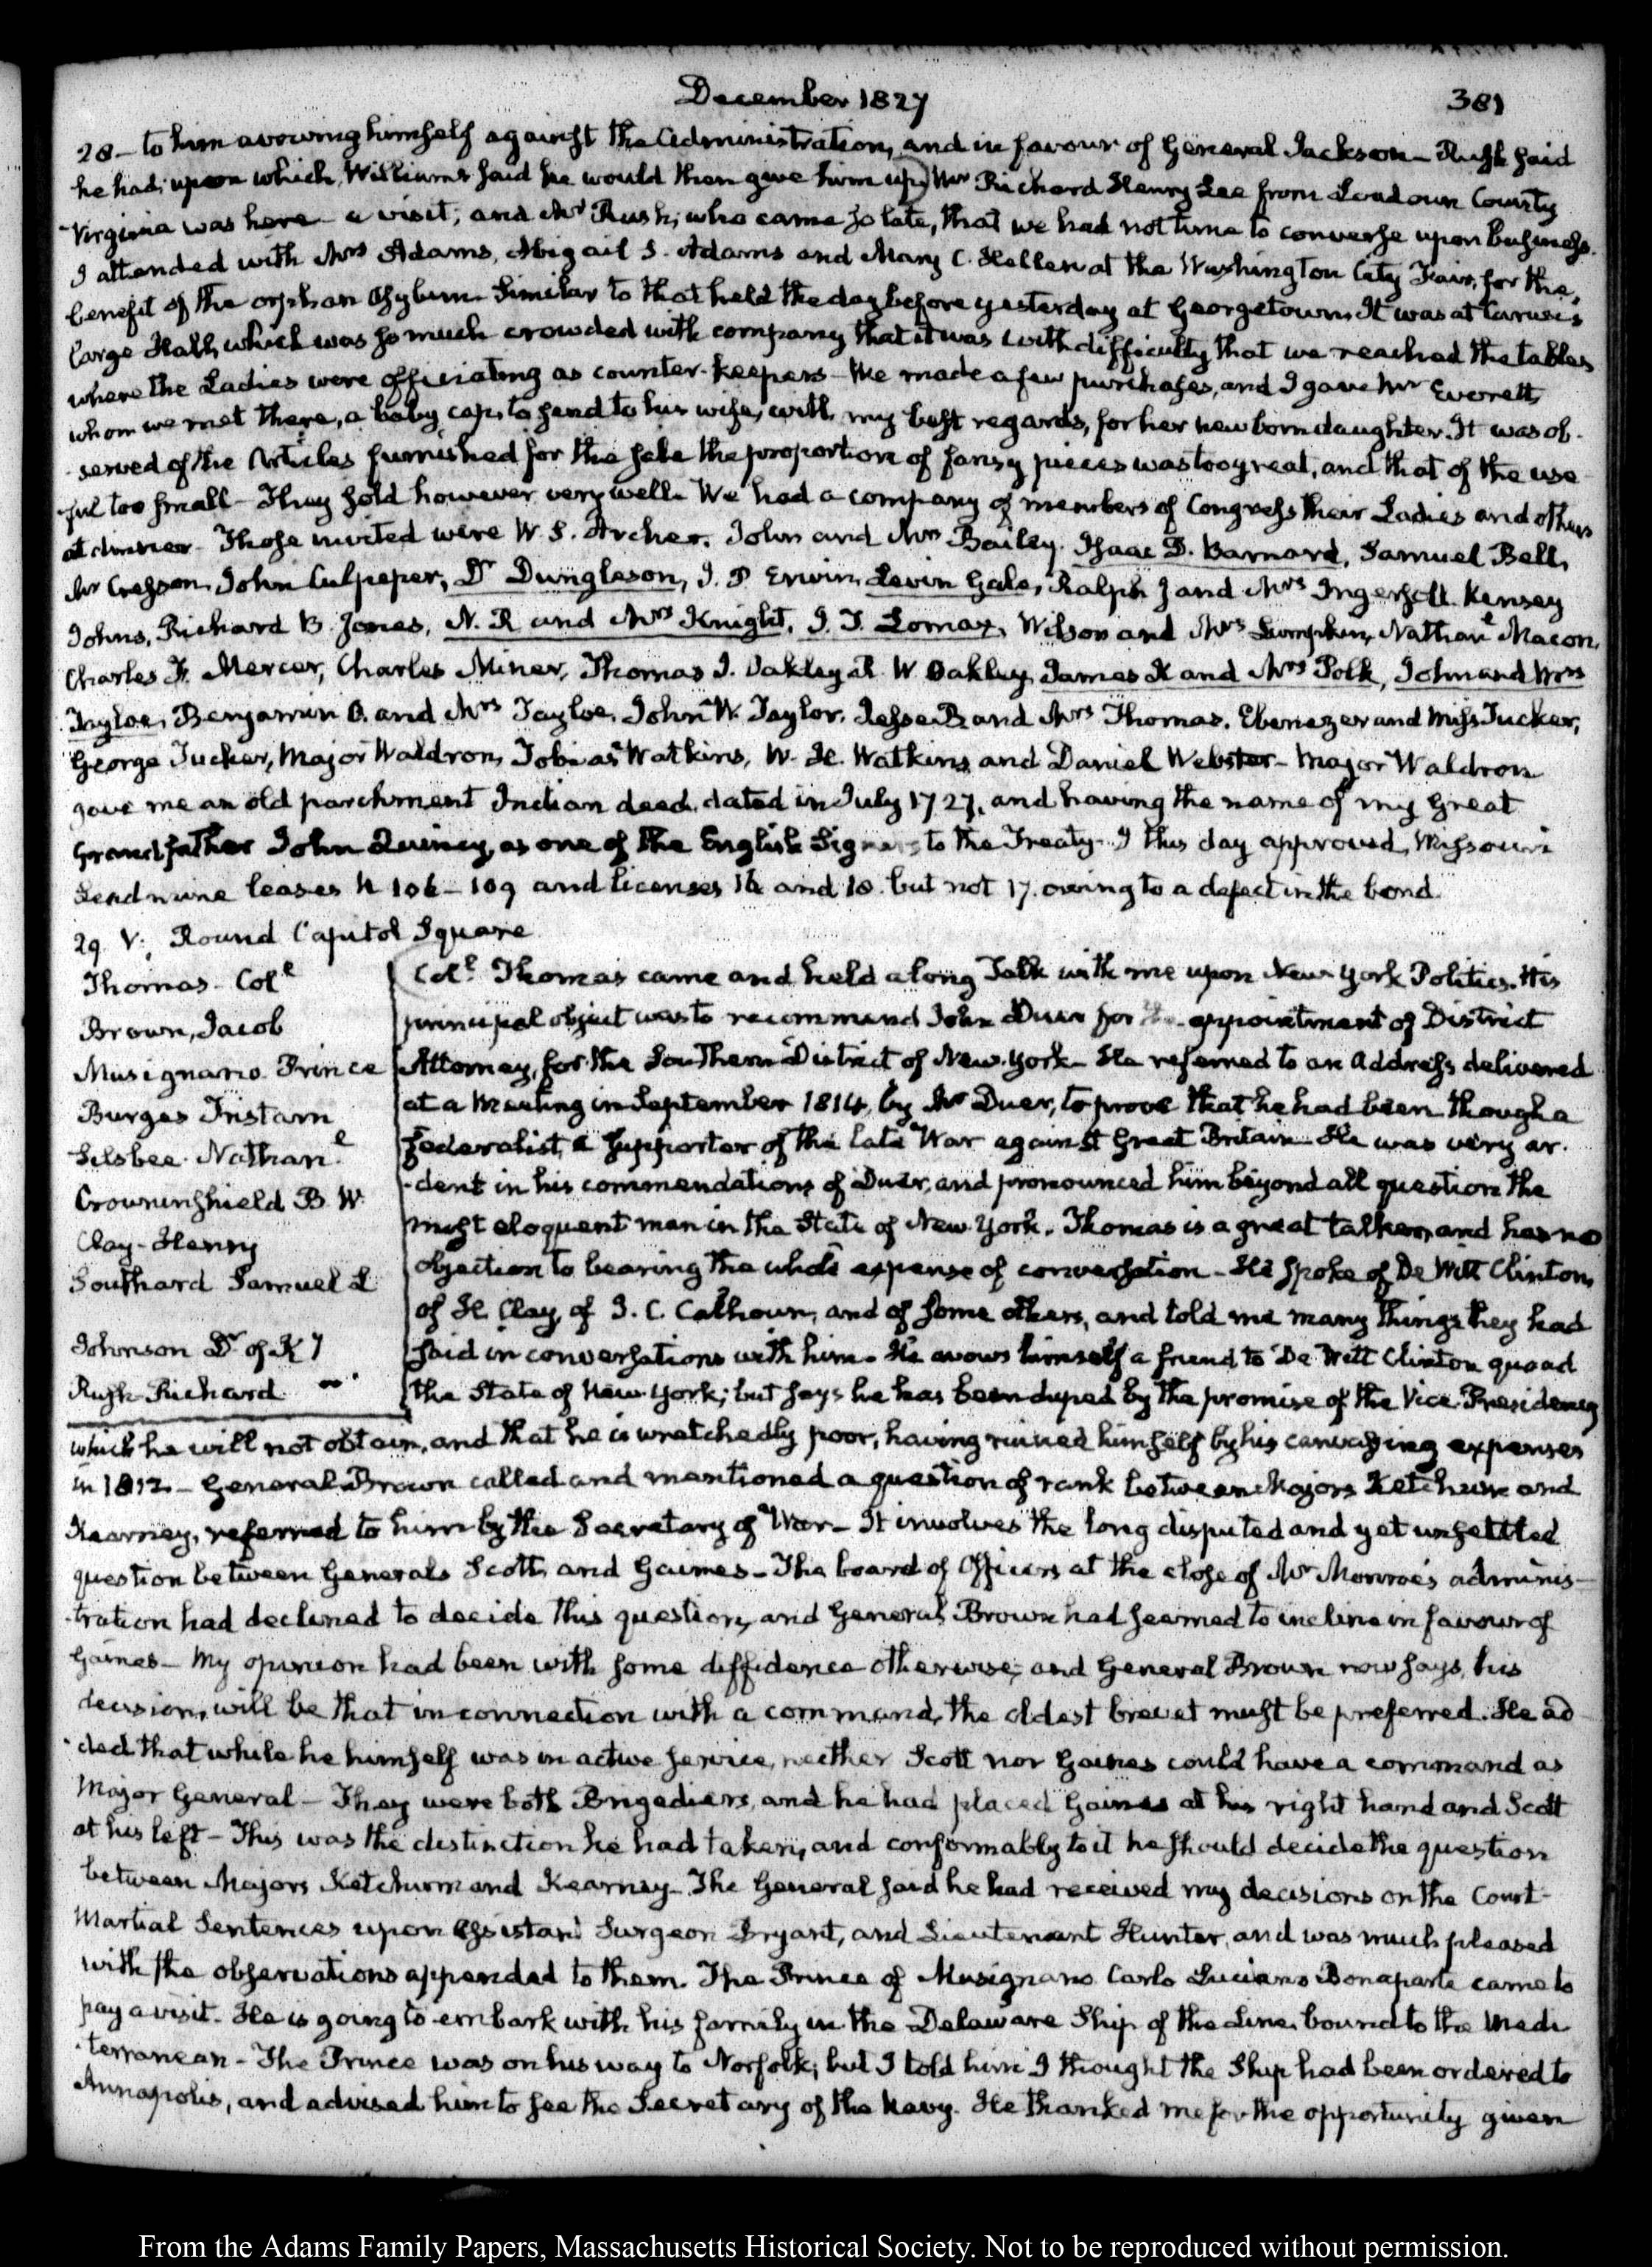 December 1827
381
28 – to him avowing himself against the Administration, and in favour of General Jackson – Rush said
he had; upon which, Williams said he would then give him up) Mr Richard Henry Lee from Loudoun County
Virginia was here – a visit; and Mr Rush; who came so late, that we had not time to converse upon business.
I attended with Mrs Adams, Abigail S. Adams and Mary C. Hellen at the Washington City Fair, for the,
benefit of the orphan Asylum – Similar to that held the day before yesterday at Georgetown. It was at Carusi's
large Hall, which was so much crowded with company that it was with difficulty that we reached the tables
where the Ladies were officiating as counter-keepers – We made a few purchases, and I gave Mr Everett,
whom we met there, a baby cap, to send to his wife, with my best regards, for her new born daughter. It was ob-
-served of the Articles furnished for the sale the proportion of fancy pieces was too great, and that of the use
-ful too small – They sold however very well. We had a company of members of Congress their Ladies and others
at dinner – Those invited were W. S. Archer. John and Mrs Bailey. Isaac D. Barnard, Samuel Bell,
Mr Cresson, John Culpeper, Dr Dunglison, J. P. Erwin, Levin Gale, Ralph J and Mrs Ingersoll. Kensey
Johns, Richard B. Jones, N. R and Mrs Knight, J. T. Lomax, Wilson and Mrs Lumpkin, Nathanl Macon,
Charles F. Mercer, Charles Miner, Thomas J. Oakley, R. W Oakley, James K and Mrs Polk, John and Mrs
Tayloe, Benjamin O. and Mrs Tayloe, John W. Taylor, Jesse B and Mrs Thomas. Ebenezer and Miss Tucker,
George Tucker, Major Waldron, Tobias Watkins, W. H. Watkins and Daniel Webster – Major Waldron
gave me an old parchment Indian deed, dated in July 1727, and having the name of my Great
Grandfather John Quincy, as one of the English Signers to the Treaty. I this day approved, Missouri
Lead mine leases N 106 – 109 and licenses 16 and 18. but not 17. owing to a defect in the bond.
29. V: Round Capitol Square
Thomas – Coll
Brown, Jacob
Musignano Prince
Burges Tristam
Silsbee. Nathanl
Crowninshield B. W
Clay – Henry
Southard Samuel L
Johnson Dr of Ky
Rush – Richard
Coll Thomas came and held a long Talk with me upon New York Politics. His
principal object was to recommend John Duer for the appointment of District
Attorney, for the Southern District of New-York – He referred to an Address delivered
at a Meeting in September 1814, by Mr Duer, to prove that he had been though a
Federalist, a Supporter of the late War against Great Britain – He was very ar-
-dent in his commendations of Duer, and pronounced him beyond all question the
most eloquent man in the State of New York. Thomas is a great talker, and has no
objection to bearing the whole expense of conversation – He spoke of De Witt Clinton,
of H. Clay, of J. C. Calhoun, and of some others, and told me many things they had
said in conversations with him. He avows himself a friend to De Witt Clinton quoad
the State of New-York; but says he has been duped by the promise of the Vice-Presidency
which he will not obtain, and that he is wretchedly poor, having ruined himself by his canvassing expenses
in 1812. – General Brown called and mentioned a question of rank between Majors Ketchum and
Kearney, referred to him by the Secretary of War – It involves the long disputed and yet unsettled
question between Generals Scott, and Gaines – The board of Officers at the close of Mr Monroe's adminis-
-tration had declined to decide this question, and General Brown had seemed to incline in favour of
Gaines – My opinion had been with some diffidence otherwise; and General Brown now says, his
decision, will be that in connection with a command, the oldest brevet must be preferred. He ad
-ded that while he himself was in active service, neither Scott nor Gaines could have a command as
Major General – They were both Brigadiers, and he had placed Gaines at his right hand and Scott
at his left – This was the distinction he had taken, and conformably to it he should decide the question
between Majors Ketchum and Kearney – The General said he had received my decisions on the Court-
Martial Sentences upon Assistant Surgeon Bryant, and Lieutenant Hunter, and was much pleased
with the observations appended to them. The Prince of Musignano Carlo Luciano Bonaparte came to
pay a visit. He is going to embark with his family in the Delaware Ship of the Line, bound to the Medi
-terranean – The Prince was on his way to Norfolk; but I told him I thought the Ship had been ordered to
Annapolis, and advised him to see the Secretary of the Navy. He thanked me for the opportunity given
From the Adams Family Papers, Massachusetts Historical Society. Not to be reproduced without permission.